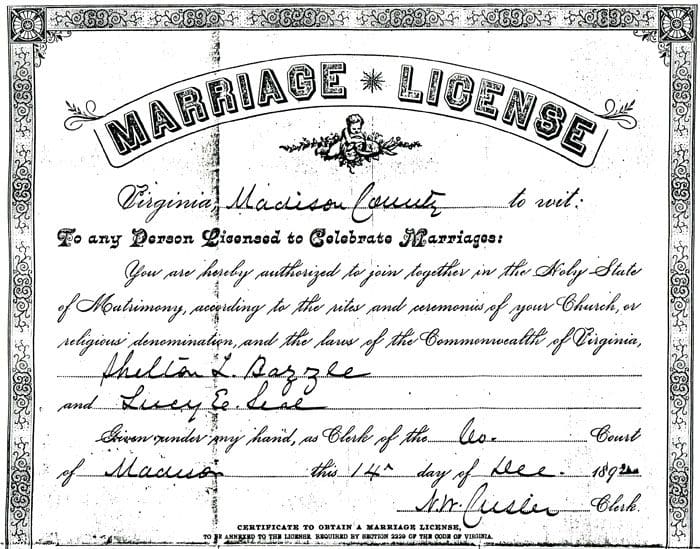 MARRIAGE * LICENSE
Virginia, Madison County to wit:
To any Person Licensed to Celebrate Marriages:
You are hereby authorized to join together in the Holy State
of Matrimony, according to the rites and ceremonies of your Church, or
religious denomination, and the laws of the Commonwealth of Virginia,
Shelton L. Bazzle
and Lucy E. Seal
Given under my hand, as Clerk of the Co. Court
of Madison this 14 day of Dec. 189
N.W. Crisler Clerk.
CERTIFICATE TO OBTAIN A MARRIAGE LICENSE,
TO BE ANNEXED TO THE LICENSE REQUIRED BY SECTION 2229 OF THE CODE OF VIRGINIA.